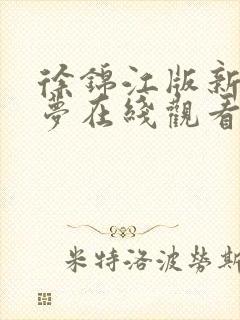 徐錦江版新
夢在綫觀看
米特洛波勞斯